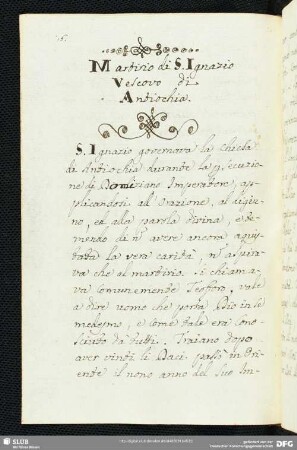 6.
Martirio di S. Ignazio
Vescovo di
Antiochia.
S. Ignazio governava la Chiesa
di Antiochia durante la psecuzione
ne di Domiziano Imperatore, ap
plicandosi all'Orazione, al digiu
no, ed alla parola divina, e te
mendo di nō avere ancora aqui
stata la vera carità, nō aspira
va che al martirio. Si chiam
ava comunemente Teoforo, vale
a dire uomo che porta Dio in se
medesimo, e come tale era cono
sciuto da tutti. Traiano dopo
aver vinti li Daci passò in Ori
ente il nono anno del suo Im-
SLUB
DFG
gefördert von der
Deutschen Forschungsgemeinschaft